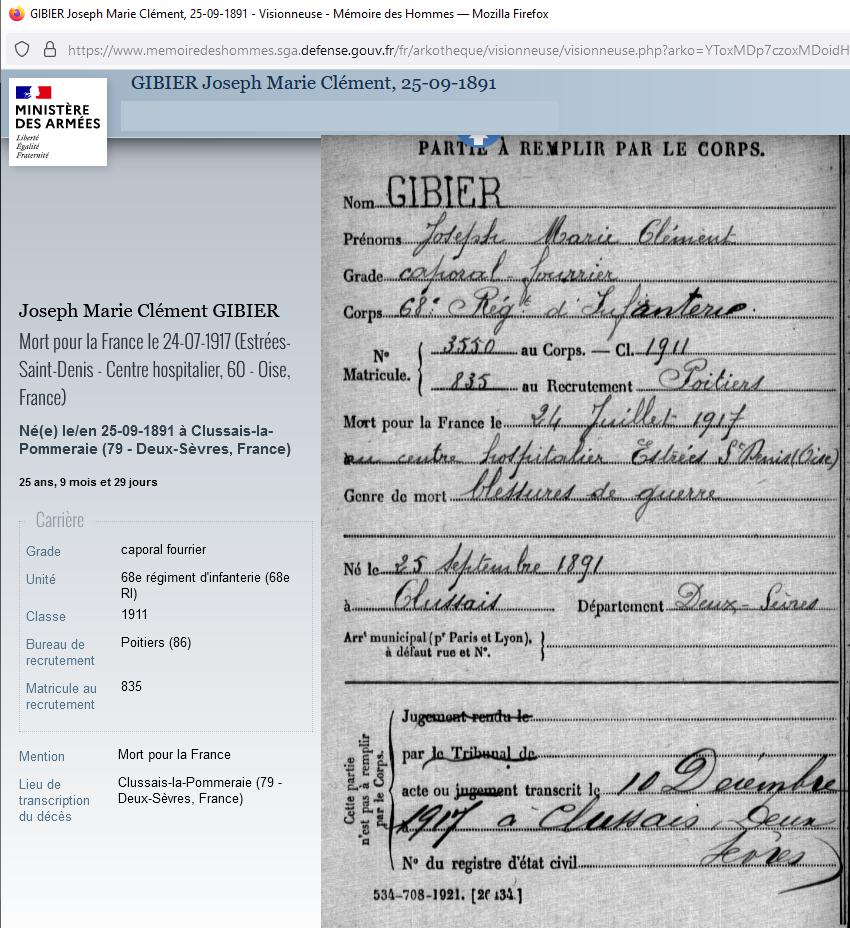 GIBIER Joseph Marie Clément, 25-09-1891 - Visionneuse - Mémoire des Hommes — Mozilla Firefox
https://www.memoiredeshommes.sga.defense.gouv.fr/fr/arkotheque/visionneuse/visionneuse.php?arko=YToxMDp7czoxMDoidH
GIBIER Joseph Marie Clément, 25-09-1891
MINISTÈRE
DES ARMÉES
Liberté
Égalité
Fraternité
Joseph Marie Clément GIBIER
Mort pour la France le 24-07-1917 (Estrées-
Saint-Denis - Centre hospitalier, 60 - Oise,
France)
Né(e) le/en 25-09-1891 à Clussais-la-
Pommeraie (79 - Deux-Sèvres, France)
25 ans, 9 mois et 29 jours
Carrière
Grade caporal fourrier
Unité 68e régiment d'infanterie (68e
RI)
Classe 1911
Bureau de Poitiers (86)
recrutement
Matricule au 835
recrutement
Mention Mort pour la France
Lieu de Clussais-la-Pommeraie (79 -
transcription Deux-Sèvres, France)
du décès
PARTIE À REMPLIR PAR LE CORPS.
Nom GIBIER
Prénoms Joseph Marie Clément
Grade caporal-fourrier
Corps 68e Régt d'Infanterie.
No
Matricule.
3550 au Corps. — Cl. 1911
835 au Recrutement Poitiers
Mort pour la France le 24 Juillet 1917
au centre hospitalier Estrées St Denis (Oise)
Genre de mort blessures de guerre
Né le 25 Septembre 1891
à Clussais Département Deux-Sèvres
Arrt municipal (pr Paris et Lyon),
à défaut rue et No.
Cette partie
n'est pas à remplir
par le Corps.
Jugement rendu le
par le Tribunal de
acte ou jugement transcrit le 10 Décembre
1917 à Clussais, Deux
Sèvres
No du registre d'état civil
534-708-1921. [26434.]